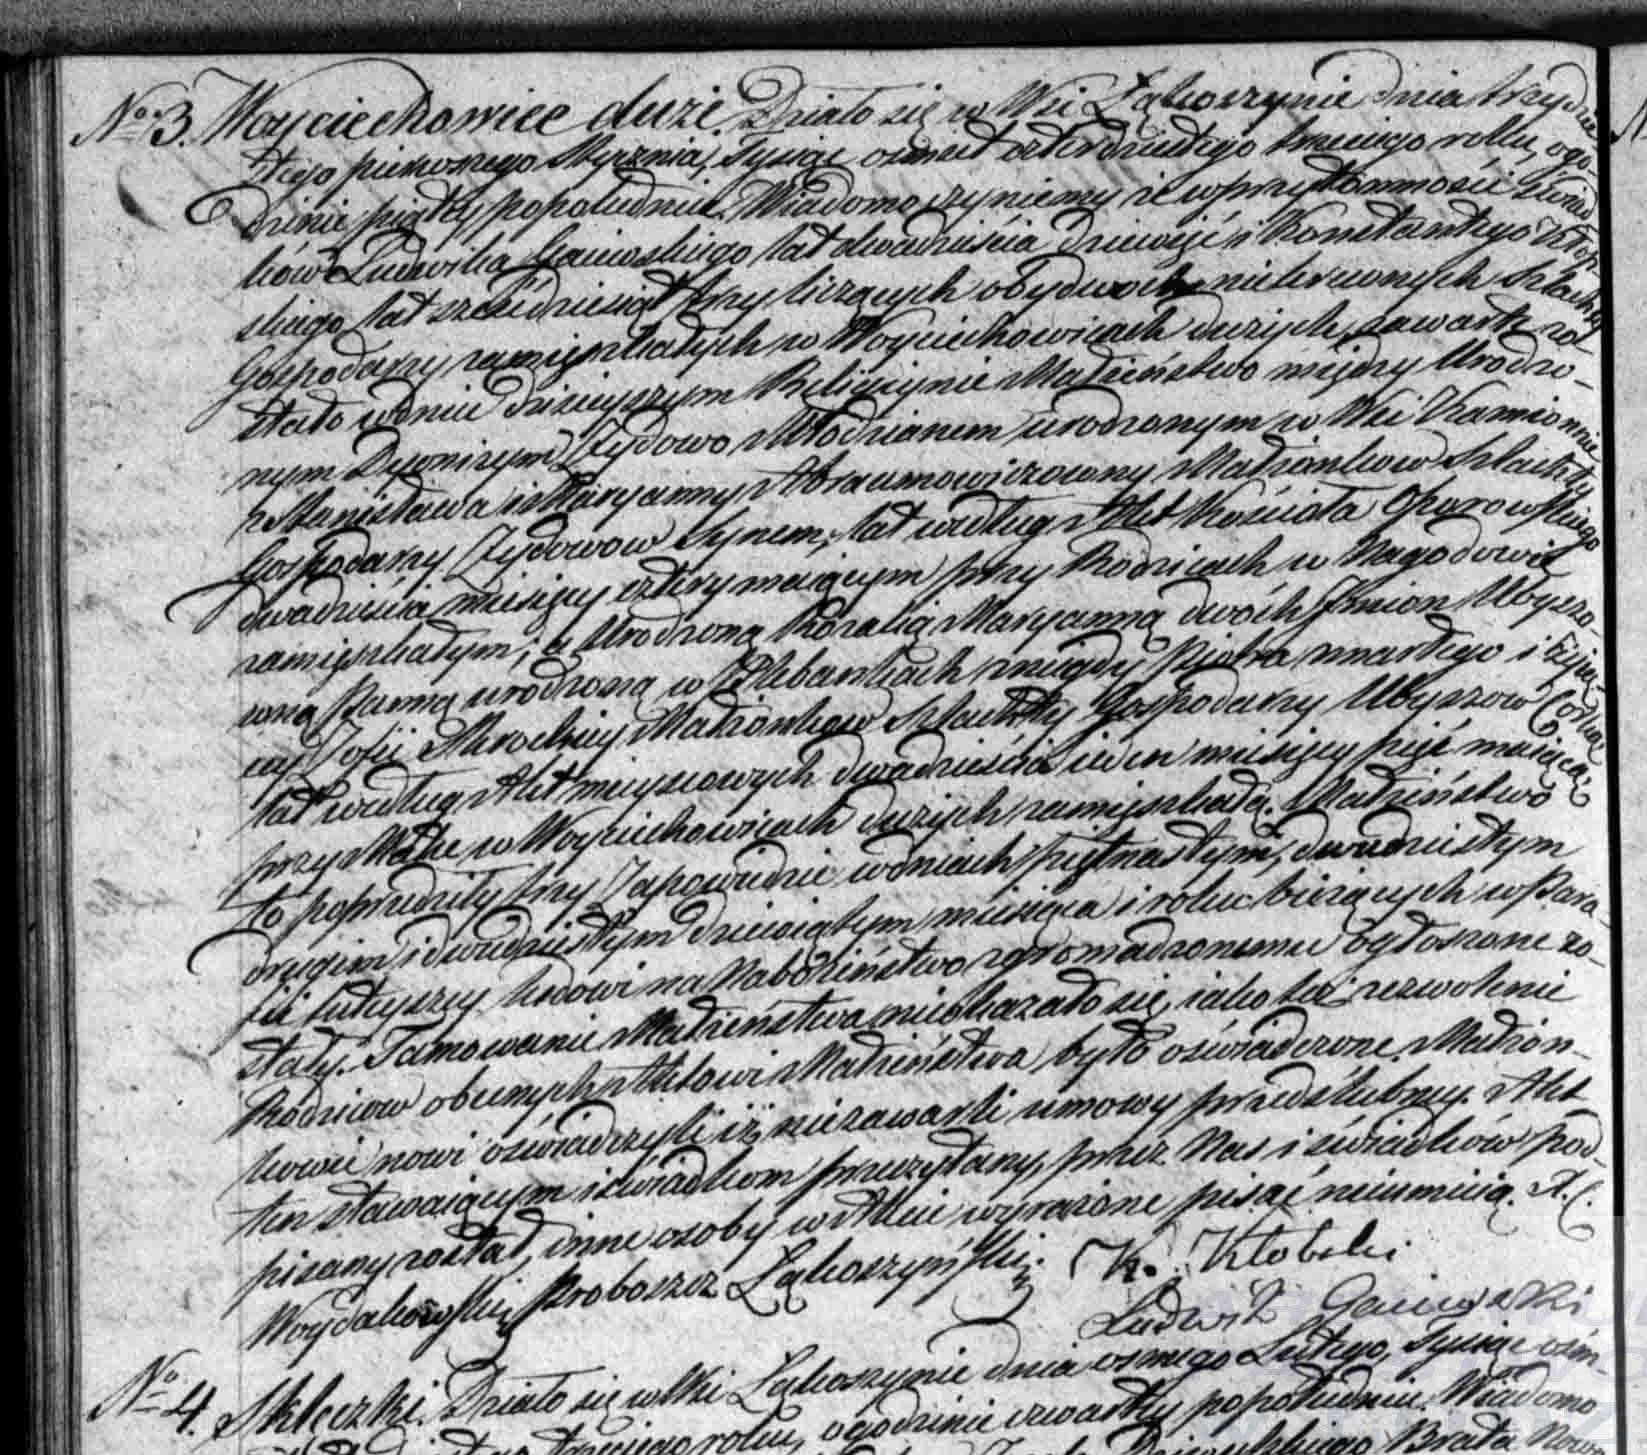 No 3. Woyciechowice duże. Działo się w Wsi Łąkoszynie dnia trzydzie-
stego pierwszego Stycznia, Tysiąc osmset czterdziestego trzeciego roku, ogo-
dzinie piątey popołudniu. Wiadomo czyniemy iż w przytomności świad-
ków Ludwika Gaiewskiego lat dwadzieścia dziewięć i Konstantego Kłob-
skiego lat sześćdziesiąt trzy liczących obydwóch niekrewnych Szlachty
Gospodarzy zamięszkałych w Woyciechowicach dużych, zawarte zo-
stało wdniu dzisieyszym Religiynie Małżeństwo między Urodzo-
nym Dyonizym Żydowo Młodzianem urodzonym w Wsi Kamionnie
z Stanisława i Maryanny Abraumowiczowny Małżonkow Szlachty
Gospodarzy Żydowow Synem, lat według Akt Kościoła Oporowskiego
dwadzieścia miesięcy cztery maiącym przy Rodzicach w Nagodowie
zamięszkałym; a Urodzoną Rozalią Maryanną dwóch Imion Ubyszo-
wną Panną urodzoną w Chlebankach niegdy Piotra zmarłego i żyią-
cey Zofii Mroczkiey Małżonkow Szlachty Gospodarzy Ubyszow Córką
lat według Akt mieyscowych dwadzieścia ieden miesięcy pięć maiącą;
przy Matce w Woyciechowicach dużych zamięszkałą. Małżeństwo
to poprzedziły trzy Zapowiedzie wdniach piętnastym, dwudziestym
drugim i dwudziestym dziewiątym miesiąca i roku bieżących w Para-
fii tuteyszey ludowi na Nabożeństwo zgromadzonemu ogłoszone zo-
stały. Tamowanie Małżeństwa nieokazało się, iako też zezwolenie
Rodzicow obecnych Aktowi Małżeństwa było oświadczone. Małżon-
kowie nowi oświadczyli iż niezawarli umowy przedślubney. Akt
ten stawaiącym i świadkom przeczytany, przez Nas i świadków pod-
pisany został, inne osoby w Akcie wyrażone pisać nieumieią. X. C.
Woydakowski Proboszcz Łąkoszyński. K. Kłobski
Ludwik Gaiewski
No 4. Skleczki. Działo się w Wsi Łąkoszynie dnia osmego Lutego, Tysiąc ośm
trzeciego roku, ogodzinie czwartey popołudniu. Wiadomo